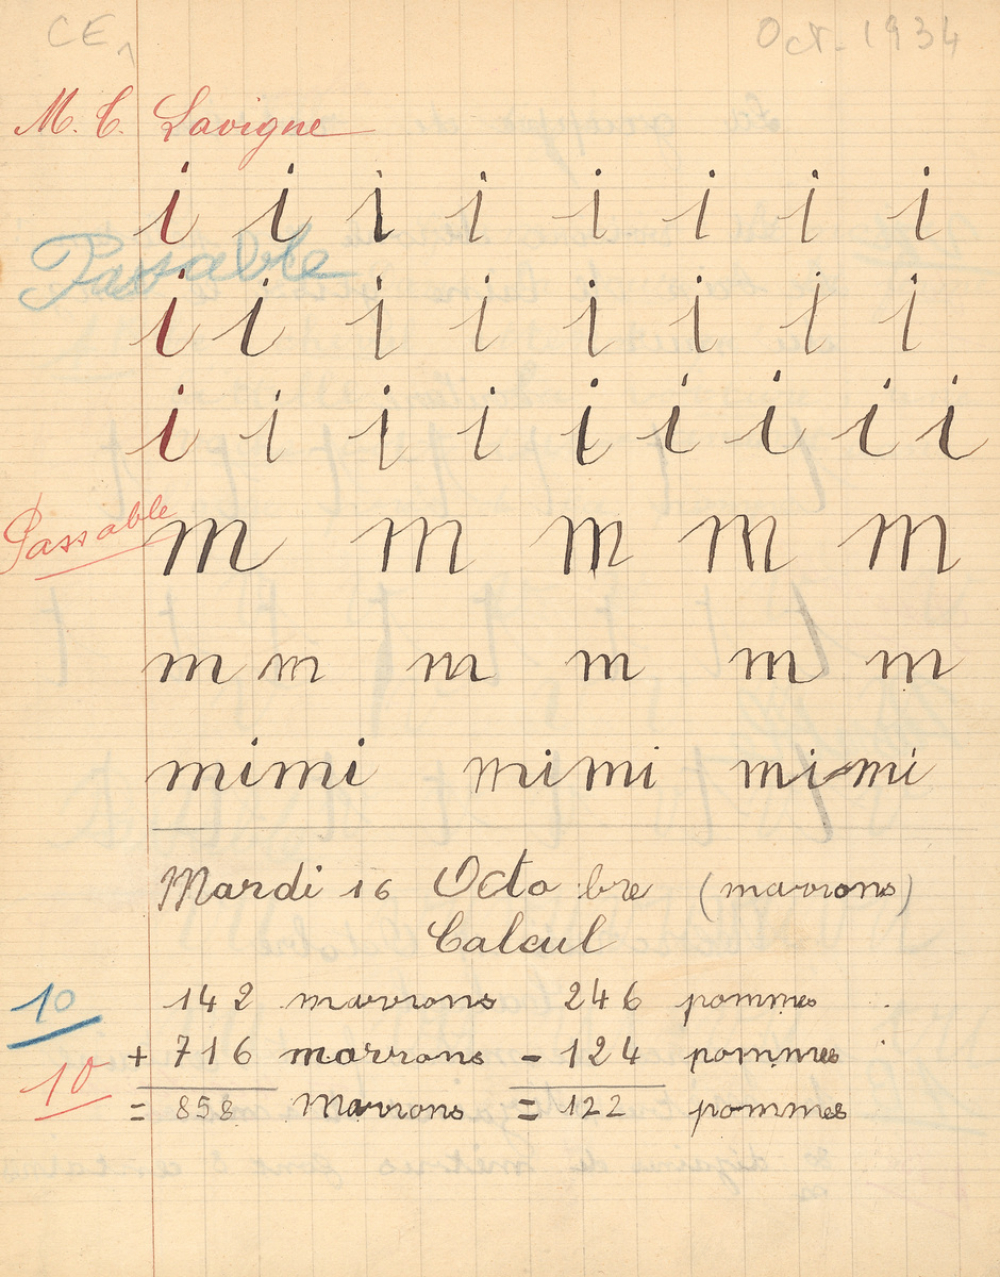 CE1 Oct. 1934
M. C. Lavigne
i i i i i i i i
Passable
i i i i i i i i
i i i i i i i i i
Passable
m m m m m
m m m m m m
mimi mimi mimi
Mardi 16 Octobre (marrons)
Calcul
10 142 marrons 246 pommes
+ 716 marrons - 124 pommes
10 = 858 Marrons = 122 pommes